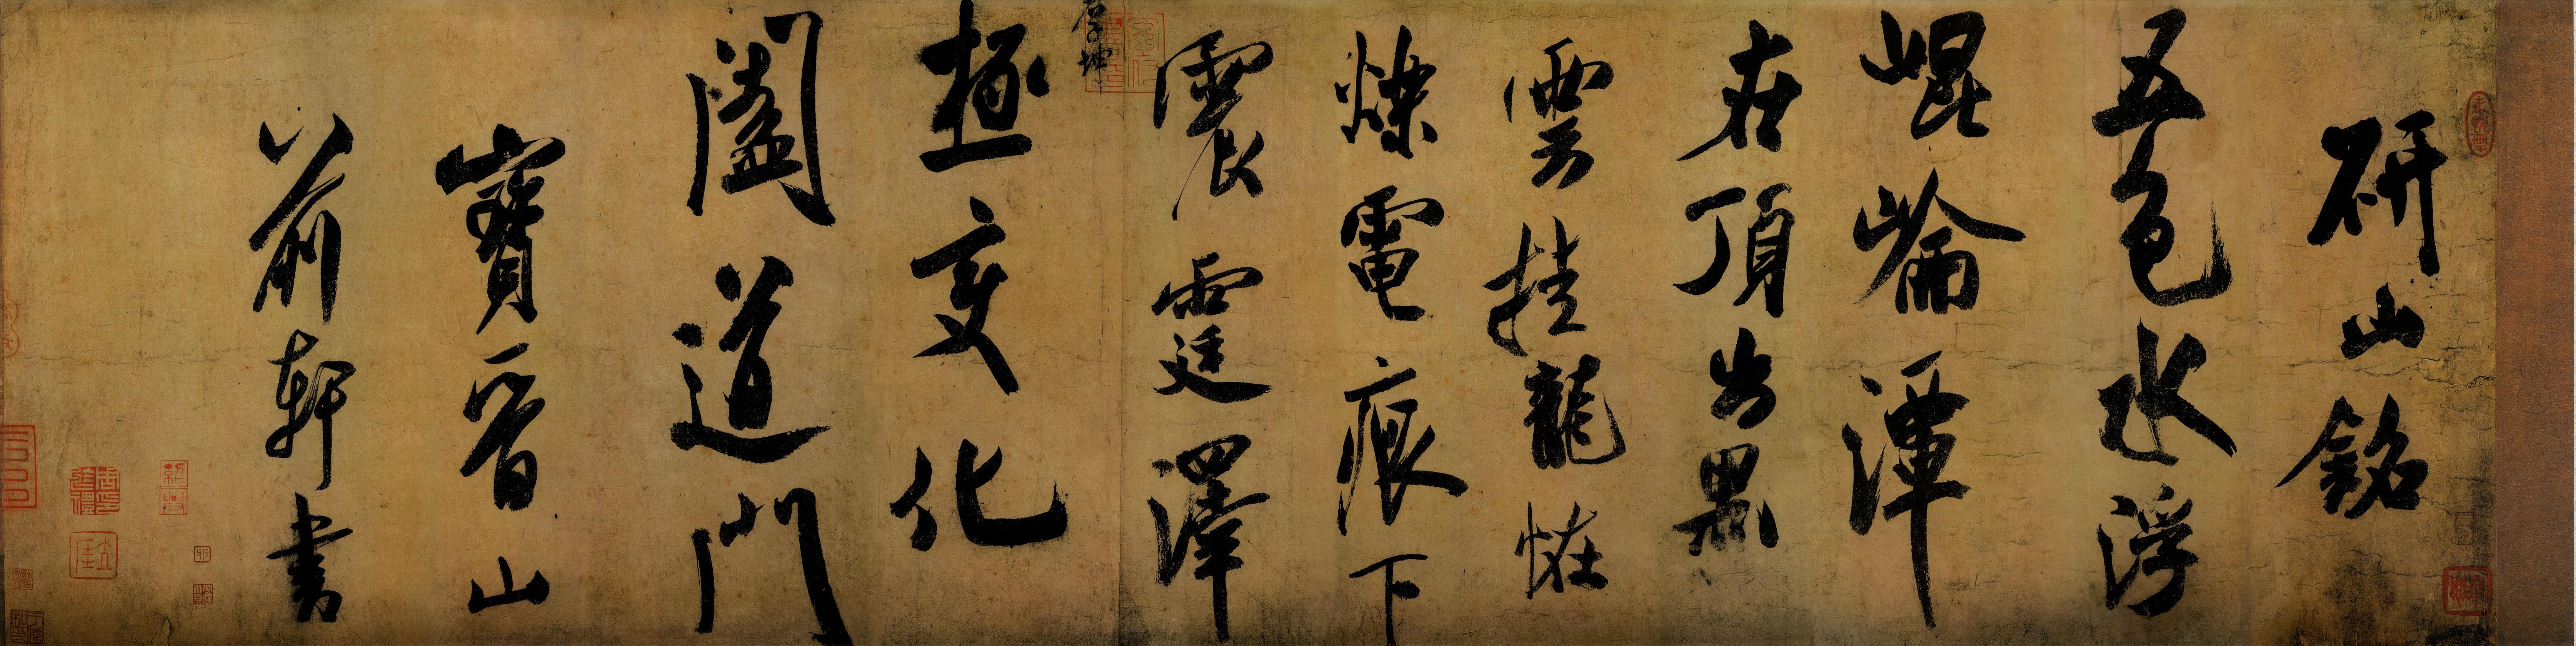 研山銘
五色水浮
崐崘潭
在頂出黑
雲挂龍恠
爍電痕下
震霆澤
厚坤
極變化
闔道門
寶晉山
前軒書